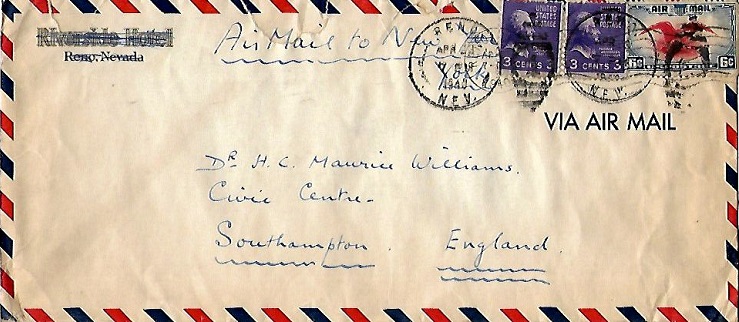 Riverside Hotel
Reno, Nevada
Air Mail to New
York
UNITED STATES POSTAGE
3 CENTS 3
3 CENTS 3
AIR MAIL
6¢ 6¢
RENO
APR
1940
NEV.
NEV.
VIA AIR MAIL
Dr. H. C. Maurice Williams.
Civic Centre-
Southampton. England.